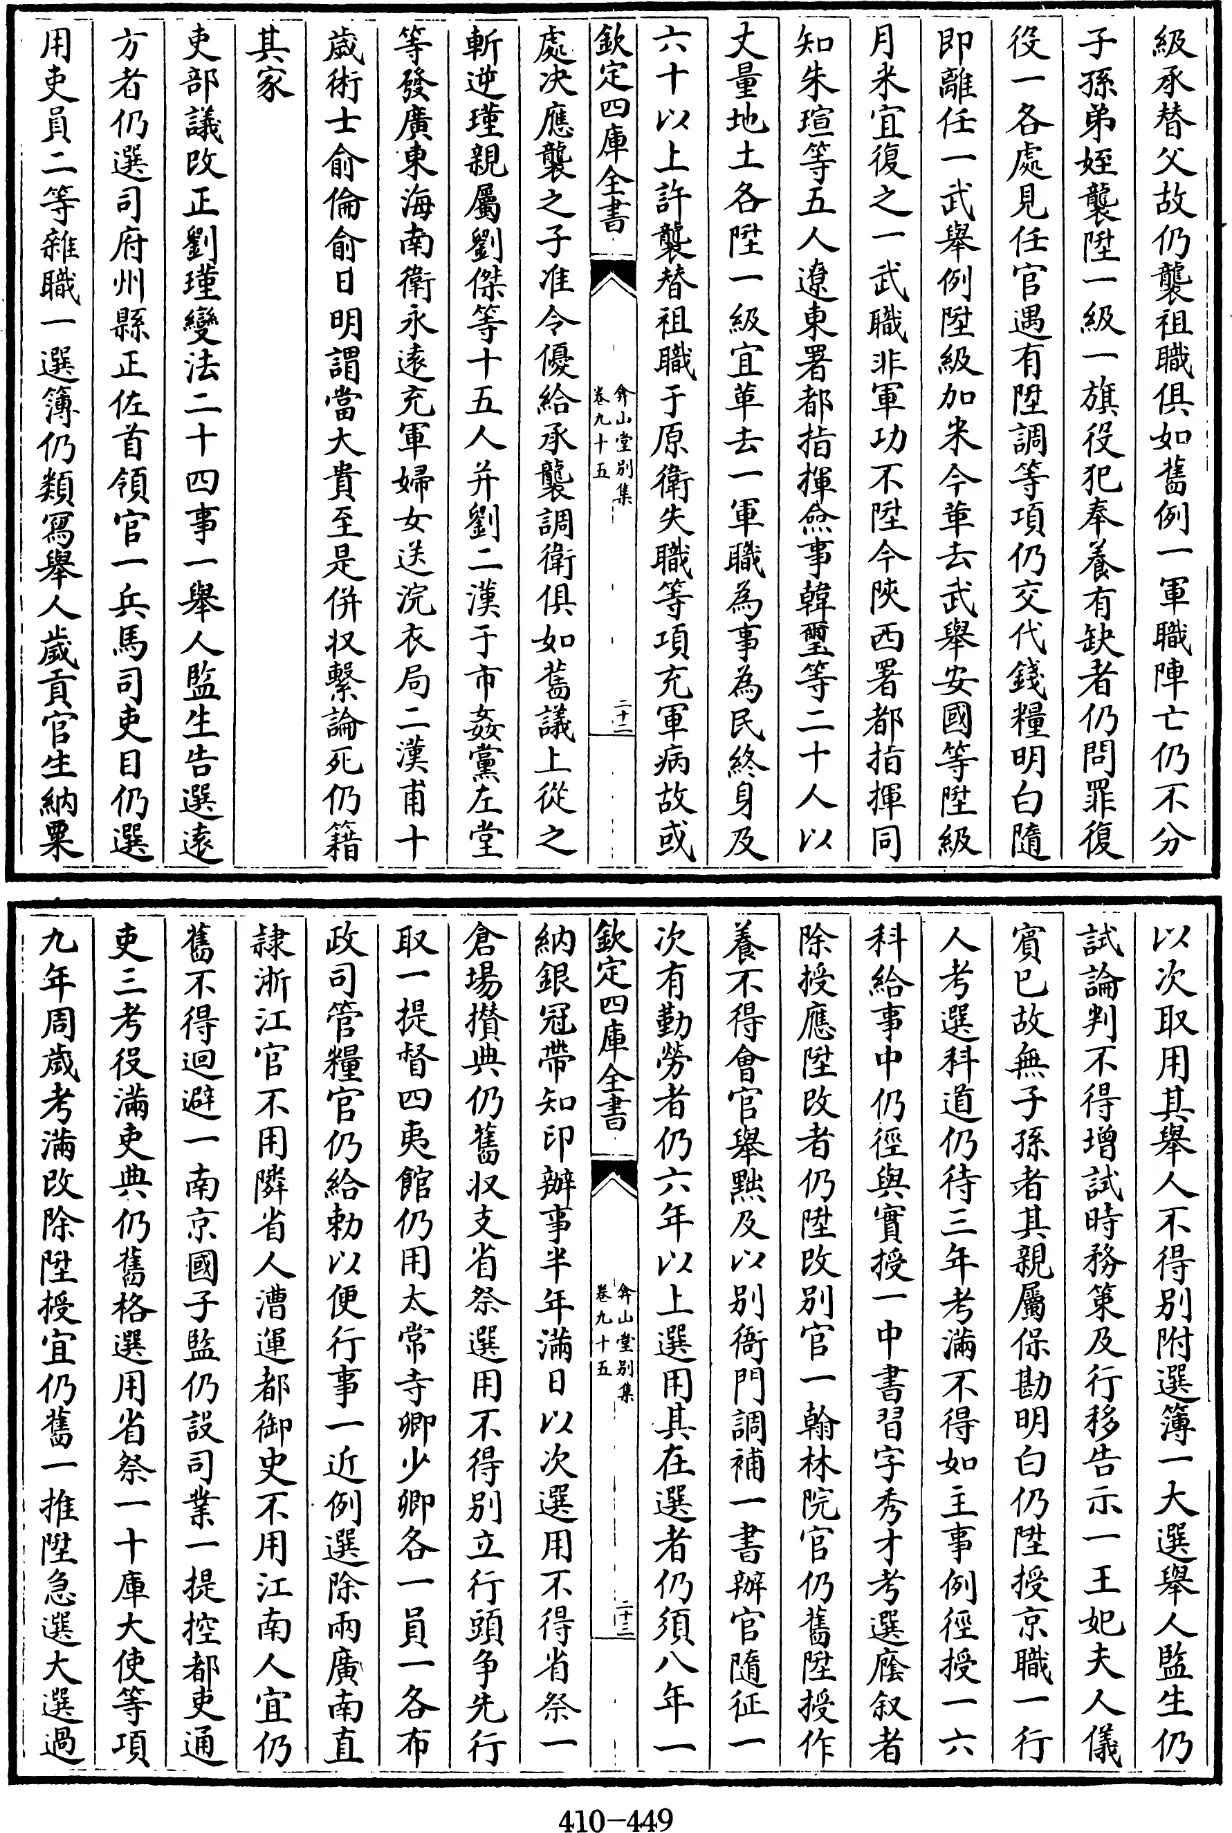 級承替父故仍襲祖職俱如舊例一軍職陣亡仍不分
子孫弟姪襲陞一級一旗役犯奉養有缺者仍問罪復
役一各處見任官遇有陞調等項仍交代錢糧明白隨
即離任一武舉例陞級加米今革去武舉安國等陞級
月米宜復之一武職非軍功不陞今陜西署都指揮同
知朱瑄等五人遼東署都指揮僉事韓璽等二十人以
丈量地土各陞一級宜革去一軍職為事為民終身及
六十以上許襲替祖職于原衛失職等項充軍病故或
欽定四庫全書
弇山堂别集
卷九十五
二十二
處决應襲之子准令優給承襲調衛俱如舊議上從之
斬逆瑾親屬劉傑等十五人并劉二漢于市姦黨左堂
等發廣東海南衛永遠充軍婦女送浣衣局二漢甫十
歲術士俞倫俞日明謂當大貴至是併收繫論死仍籍
其家
吏部議改正劉瑾變法二十四事一舉人監生告選遠
方者仍選司府州縣正佐首領官一兵馬司吏目仍選
用吏員二等雜職一選簿仍類寫舉人歲貢官生納粟
以次取用其舉人不得别附選簿一大選舉人監生仍
試論判不得增試時務策及行移告示一王妃夫人儀
賓已故無子孫者其親屬保勘明白仍陞授京職一行
人考選科道仍待三年考滿不得如主事例徑授一六
科給事中仍徑與實授一中書習字秀才考選廕叙者
除授應陞改者仍陞改别官一翰林院官仍舊陞授作
養不得會官舉黜及以别衙門調補一書辦官隨征一
次有勤勞者仍六年以上選用其在選者仍須八年一
欽定四庫全書
弇山堂别集
卷九十五
二十三
納銀冠帶知印辦事半年滿日以次選用不得省祭一
倉場攢典仍舊收支省祭選用不得别立行頭争先行
取一提督四夷館仍用太常寺卿少卿各一員一各布
政司管糧官仍給勅以便行事一近例選除兩廣南直
隸浙江官不用隣省人漕運都御史不用江南人宜仍
舊不得迴避一南京國子監仍設司業一提控都吏通
吏三考役滿吏典仍舊格選用省祭一十庫大使等項
九年周歲考滿改除陞授宜仍舊一推陞急選大選過
410-449